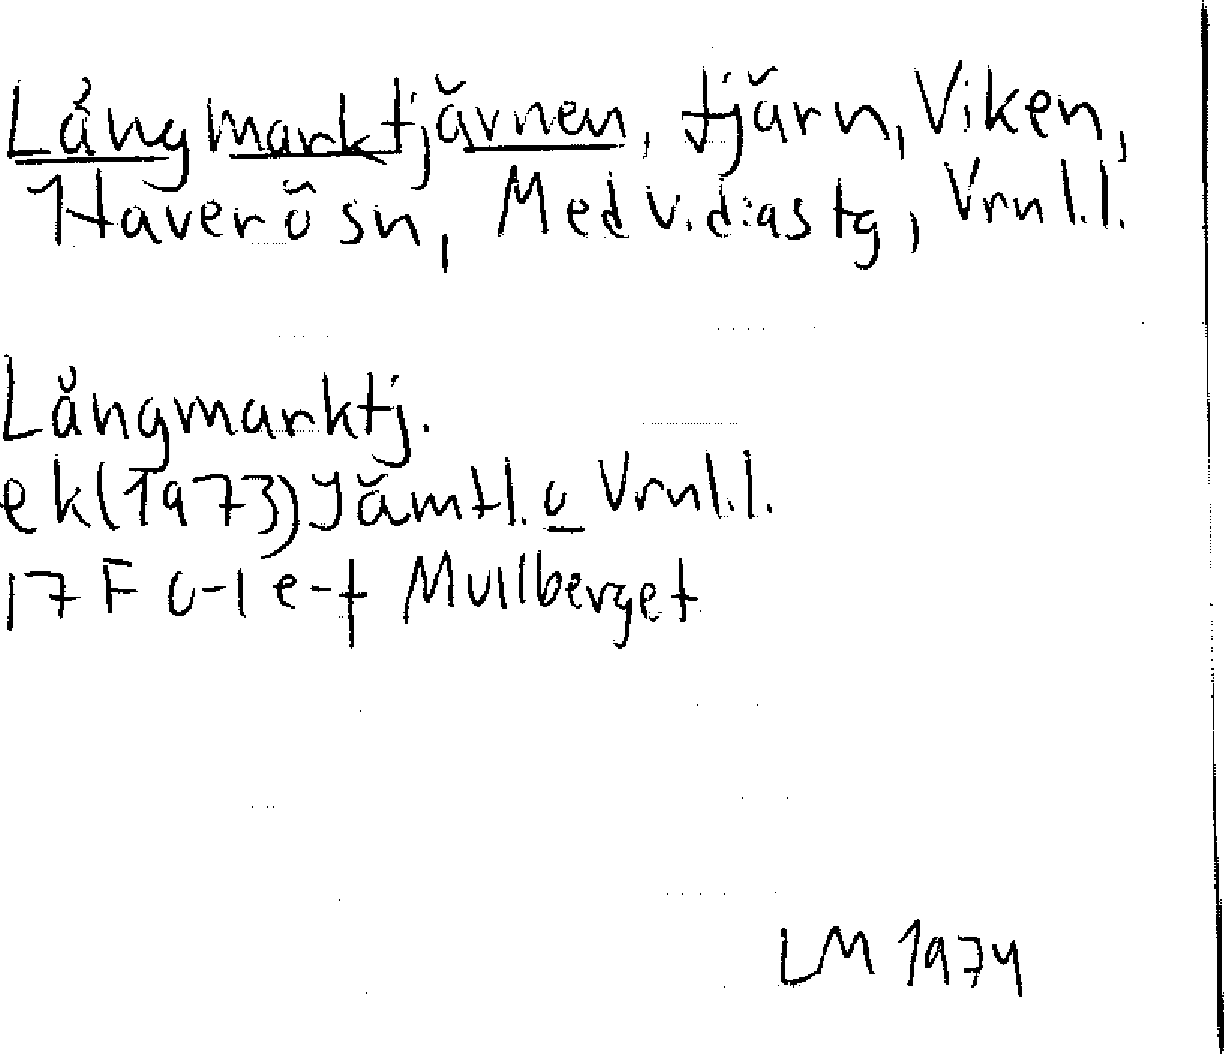 Långmarktjärnen, tjärn, Viken,
Haverö sn, Medv.diastg, Vrnl.l.
Långmarktj.
ek(1973)Jämtl. o Vrnl.l.
17 F c-l e-f Mullberget
LM 1974